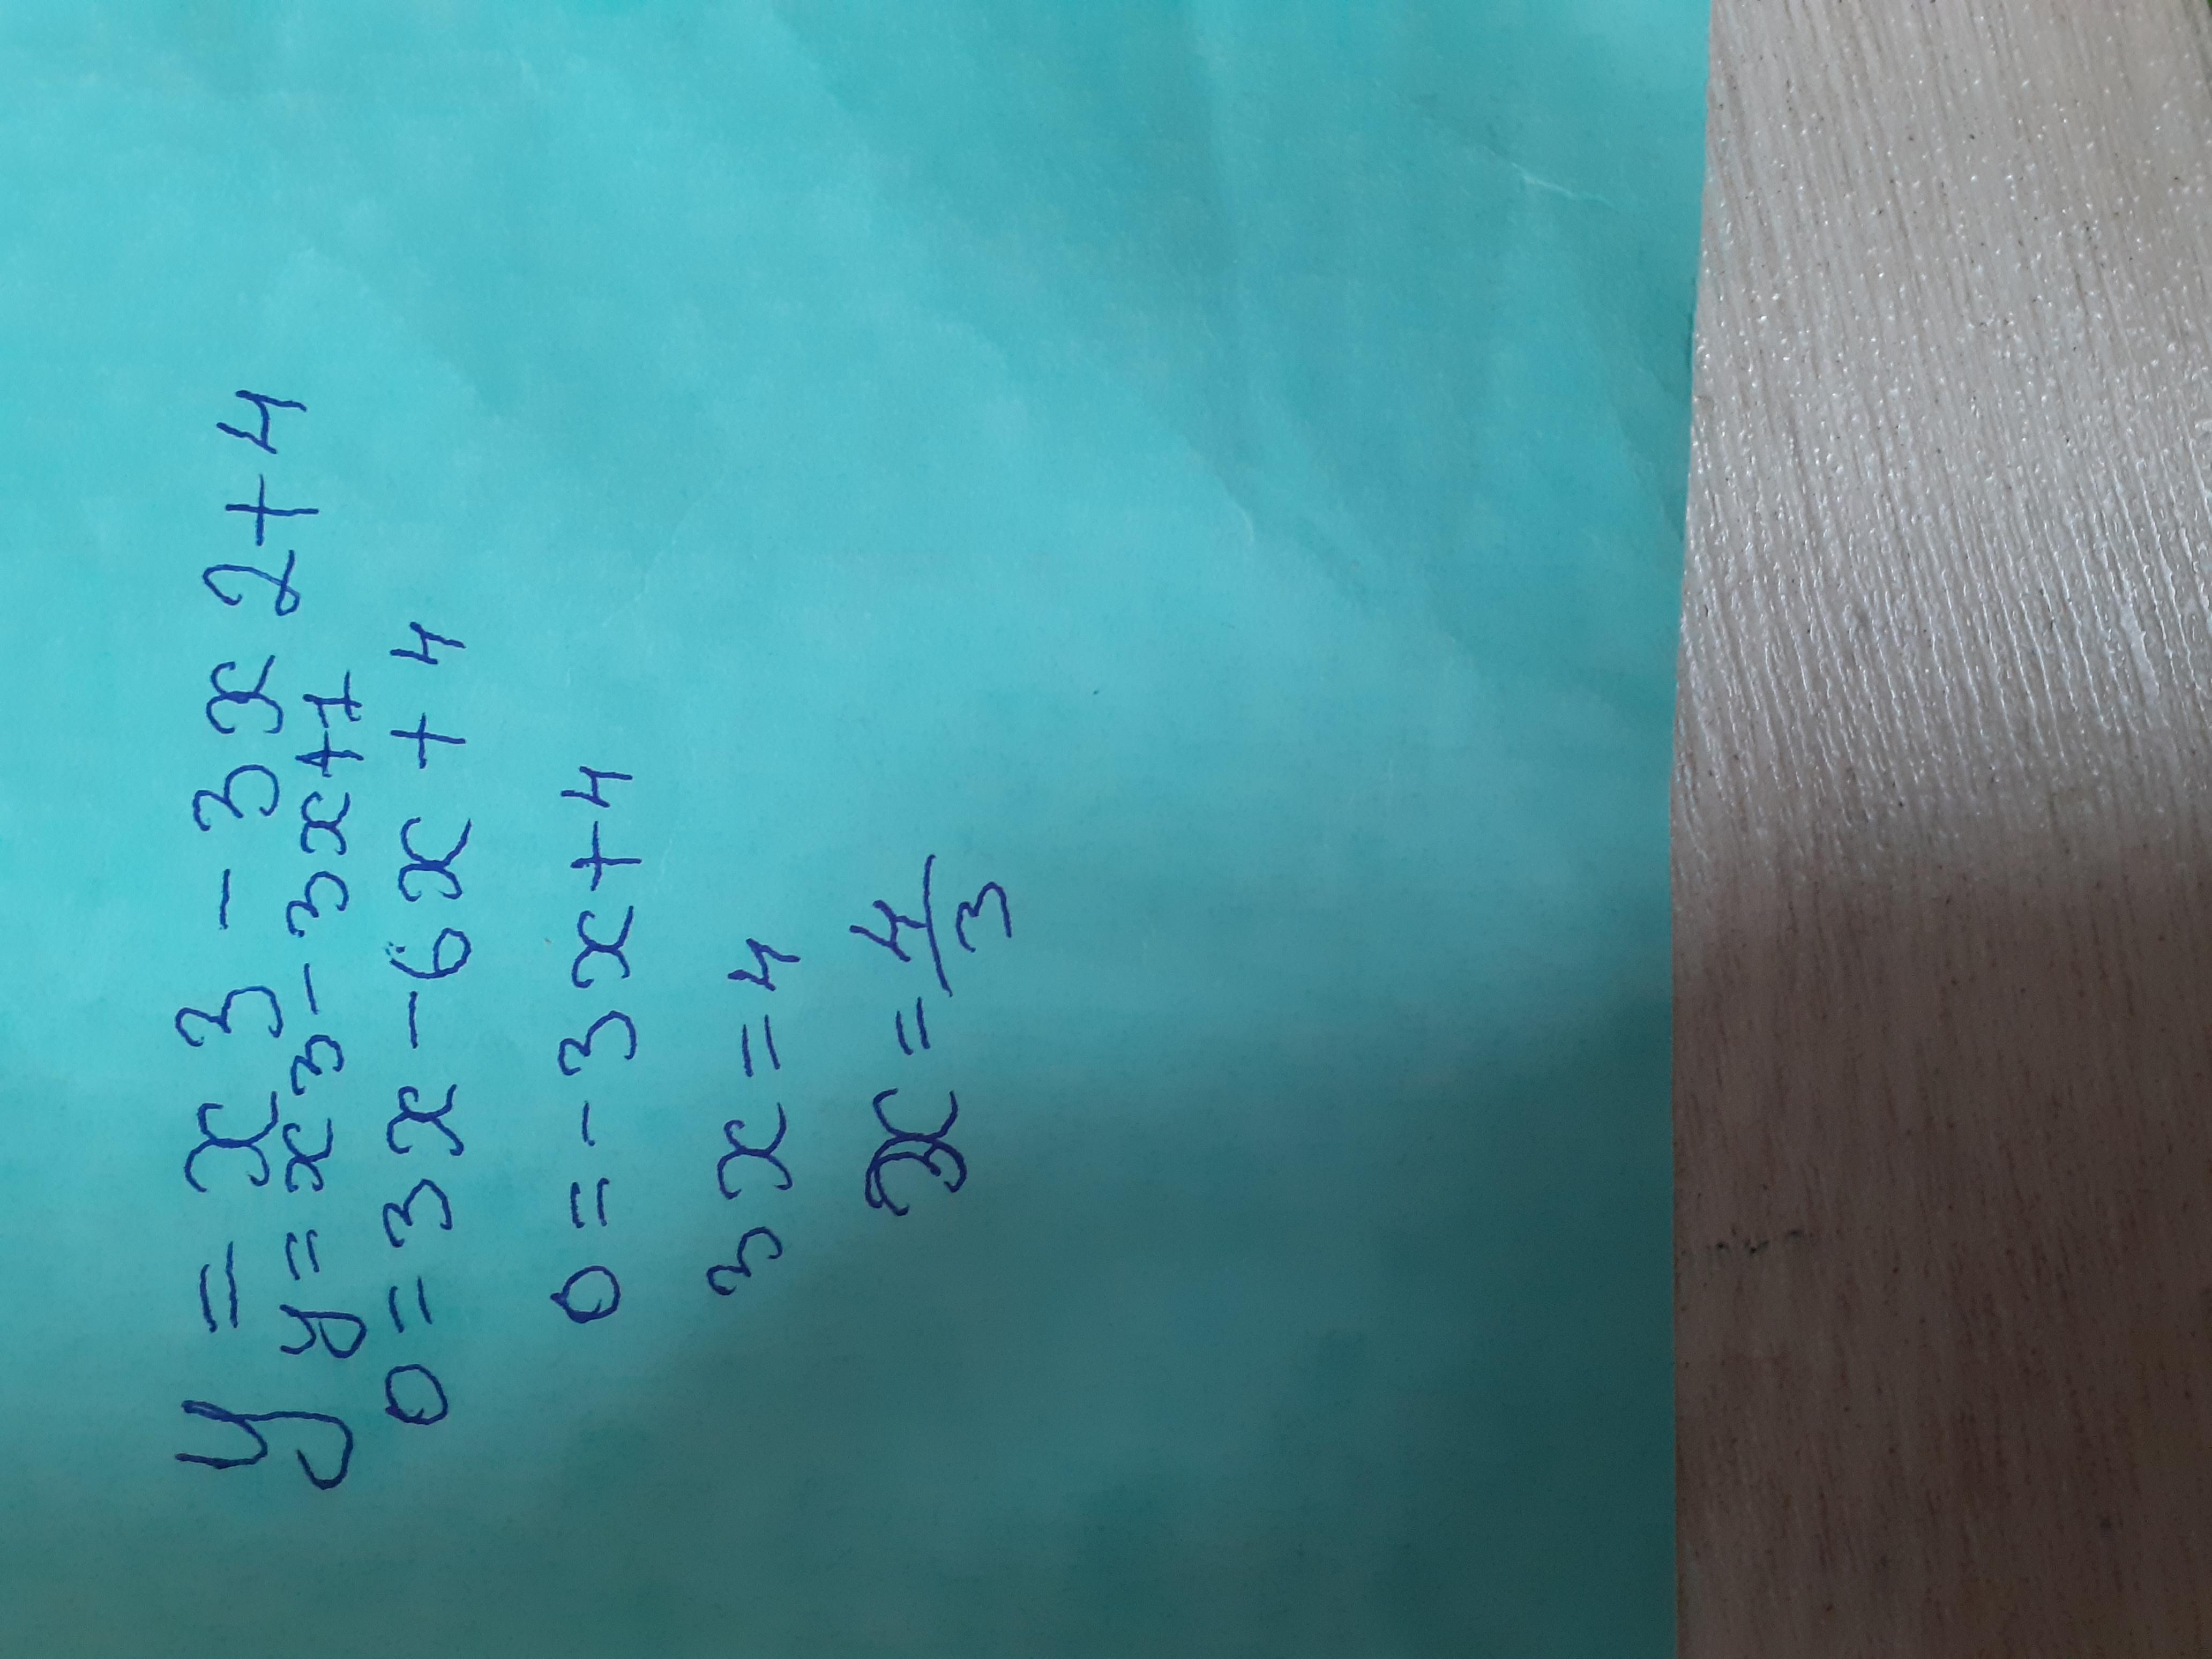 y = x 3 - 3 x 2 + 4
y = x 3 - 3 x + 1
0 = 3 x - 6 x + 4
0 = - 3 x + 4
3 x = 4
x = 4/3